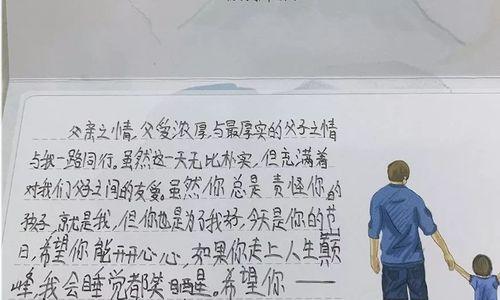 父亲之情,父爱浓厚,与最厚实的父子之情
与我一路同行,虽然这一天无比朴实,但充满着
对我们父子之间的友爱。虽然你总是责怪你的
孩子,就是我,但你也是为了我好,今天是你的节
日,希望你能开开心心,如果你走上人生巅
峰,我会睡觉都笑醒。希望你——